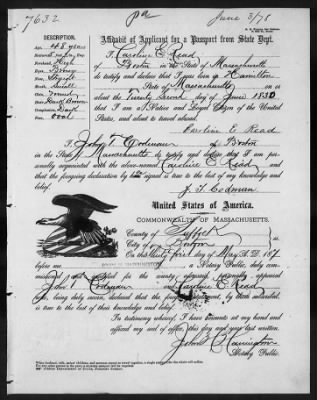 7632
pa
June 3/78
DESCRIPTION.
Affidavit of Applicant for a Passport from State Dept.
Age, 48 years
Stature, 5
Forehead, High
Eyes,
Nose, Straight
Mouth, Small
Chin,
Hair, Dark Brown
Complexion, Dark
Face, oval
I, Caroline E. Read
of Boston in the State of Massachusetts
do testify and declare that I was born in Hamilton
State of Massachusetts on or
about the Twenty Second day of June 1830
that I am a Native and Loyal Citizen of the United
States, and about to travel abroad.
Caroline E Read
I, John T. Codman of Boston
in the State Massachusetts do testify and declare that I am personally
acquainted with the above-named Caroline E. Read
and, that the foregoing declaration by her signed is true to the best of my knowledge and
belief.
J. T. Codman
United States of America.
COMMONWEALTH OF MASSACHUSETTS,
County of Suffolk
City of Boston
On this thirty first day of May A. D. 187
before me a Notary Public, duly commissioned
for the county aforesaid, personally appeared
John T Codman Caroline E. Read
who, being duly sworn, declared that the foregoing by them subscribed,
is true to the best of their knowledge and belief.
In testimony whereof, I have hereunto set my hand and
affixed my seal of office, this day and year last written.
Notary Public.